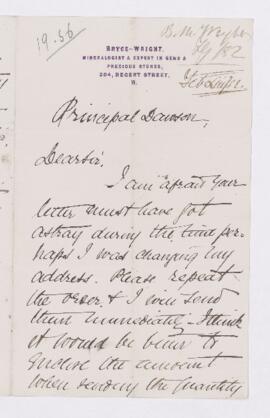 19.56
BRYCE-WRIGHT,
MINERALOGIST & EXPERT IN GEMS &
PRECIOUS STONES,
204, REGENT STREET,
W.
Principal Dawson,
Dear Sir.
I am afraid your
letter must have got
astray during the time per-
haps I was changing my
address. Please repeat
the order & I will send
them immediately. I think
it would be better to
enclose the amount
when sending the quantity